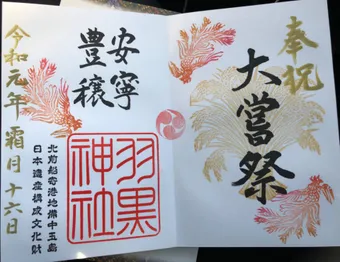 奉祝
大嘗祭
安寧
豊穣
羽黒
神社
北前船寄港地備中玉島
日本遺産構成文化財
令和元年 霜月十六日